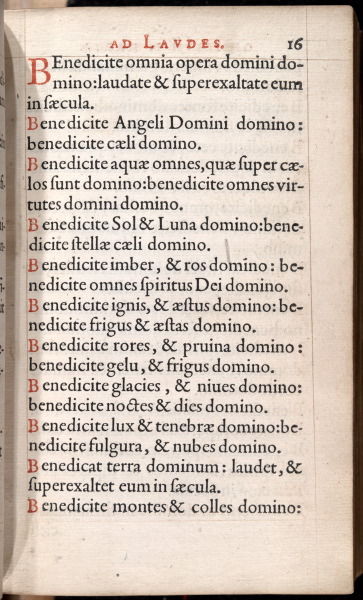 AD LAVDES. 16
BEnedicite omnia opera domini do-
mino:laudate & ſuperexaltate eum
in ſæcula.
Benedicite Angeli Domini domino:
benedicite cæli domino.
Benedicite aquæ omnes,quæ ſuper cæ-
los ſunt domino:benedicite omnes vir-
tutes domini domino.
Benedicite Sol & Luna domino:bene-
dicite ſtellæ cæli domino.
Benedicite imber, & ros domino: be-
nedicite omnes ſpiritus Dei domino.
Benedicite ignis, & æſtus domino: be-
nedicite frigus & æſtas domino.
Benedicite rores, & pruina domino:
benedicite gelu, & frigus domino.
Benedicite glacies, & niues domino:
benedicite noctes & dies domino.
Benedicite lux & tenebræ domino:be-
nedicite fulgura, & nubes domino.
Benedicat terra dominum: laudet, &
ſuperexaltet eum in ſæcula.
Benedicite montes & colles domino: